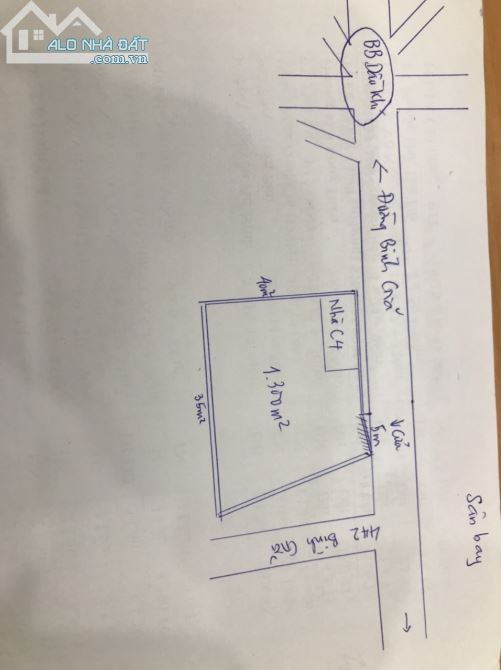 ALO NHÀ ĐẤT
.com.vn
BB Dầu Khí
← Đường Bình Giã
40m²
Nhà C4
35m²
1.300m²
5m
Cửa
Sân bay
442 Bình Giã